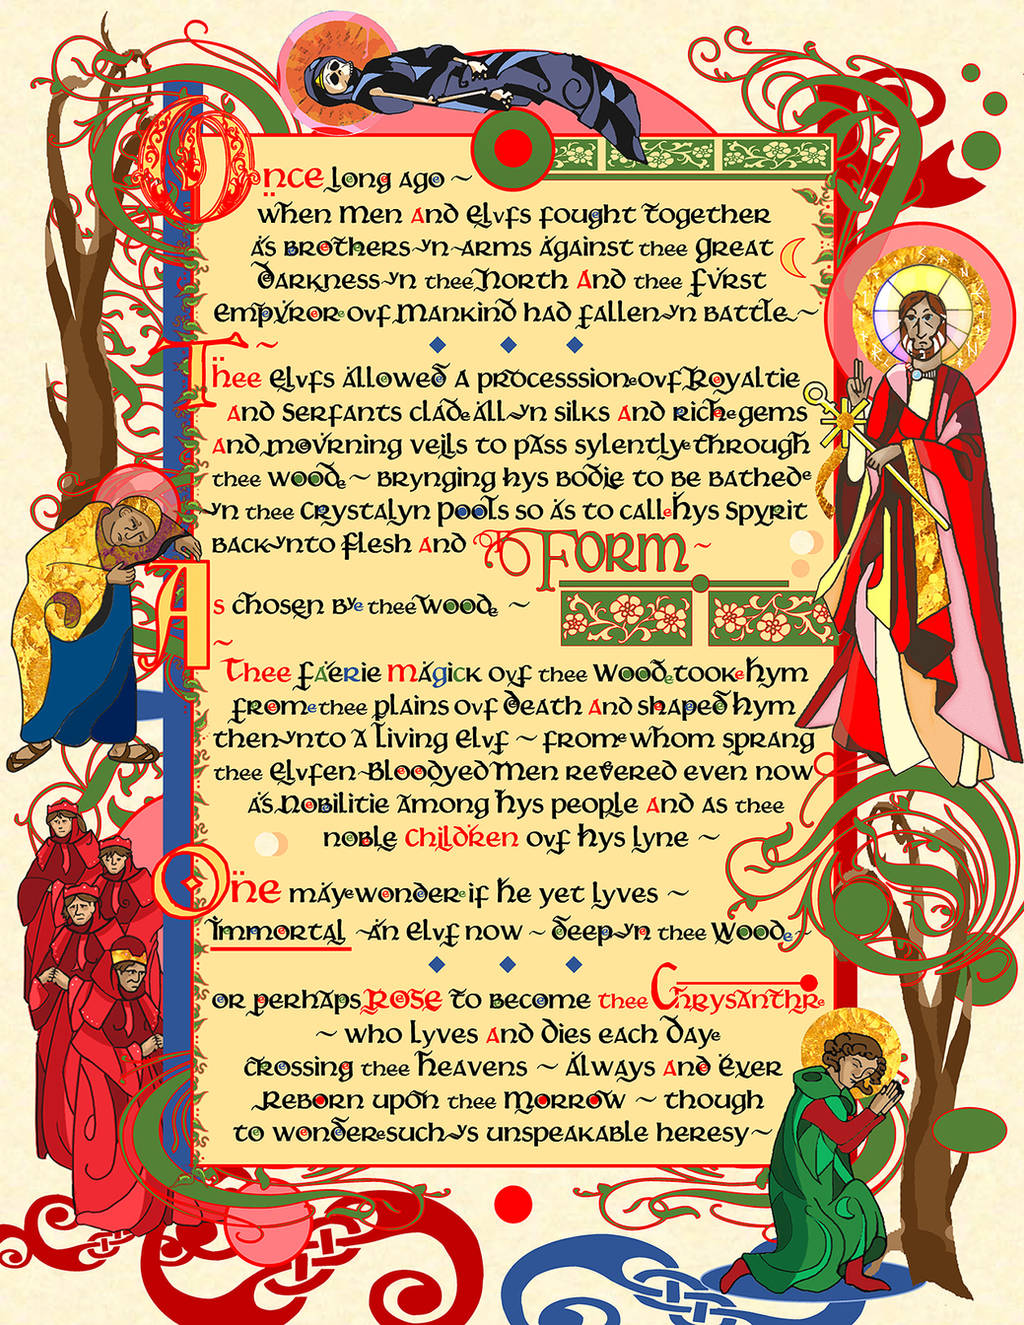 Once long ago ~
when Men and Elvfs fought together
as Brothers~yn~arms against thee Great
Darkness~yn thee North and thee fvrst
Empyror ovf Mankind had fallen~yn battle~
~
Thee Elvfs allowed a processsione ovf Royaltie
and Serfants clade all~yn silks and riche gems
and movrning veils to pass sylently through
thee Woode ~ brynging hys Bodie to be bathede
~yn thee Crystalyn Pools so as to calle hys Spyrit
back~ynto flesh and Form ~
As chosen bye thee Woode ~
~
Thee Faerie Magick ovf thee Woode tooke hym
frome thee plains ovf Death and shaped hym
then~ynto a living Elvf ~ frome whom sprang
thee Elvfen~Bloodyed Men revered even now
as Nobilitie among hys people and as thee
noble Children ovf hys lyne ~
One maye wonder if he yet lyves ~
Immortal ~an Elvf now ~ deep~yn thee Woode~
or perhaps Rose to become thee Chrysanthre
~ who lyves and dies each daye
crossing thee heavens ~ Always and Ever
Reborn upon thee Morrow ~ though
to wonder such~ys unspeakable heresy~